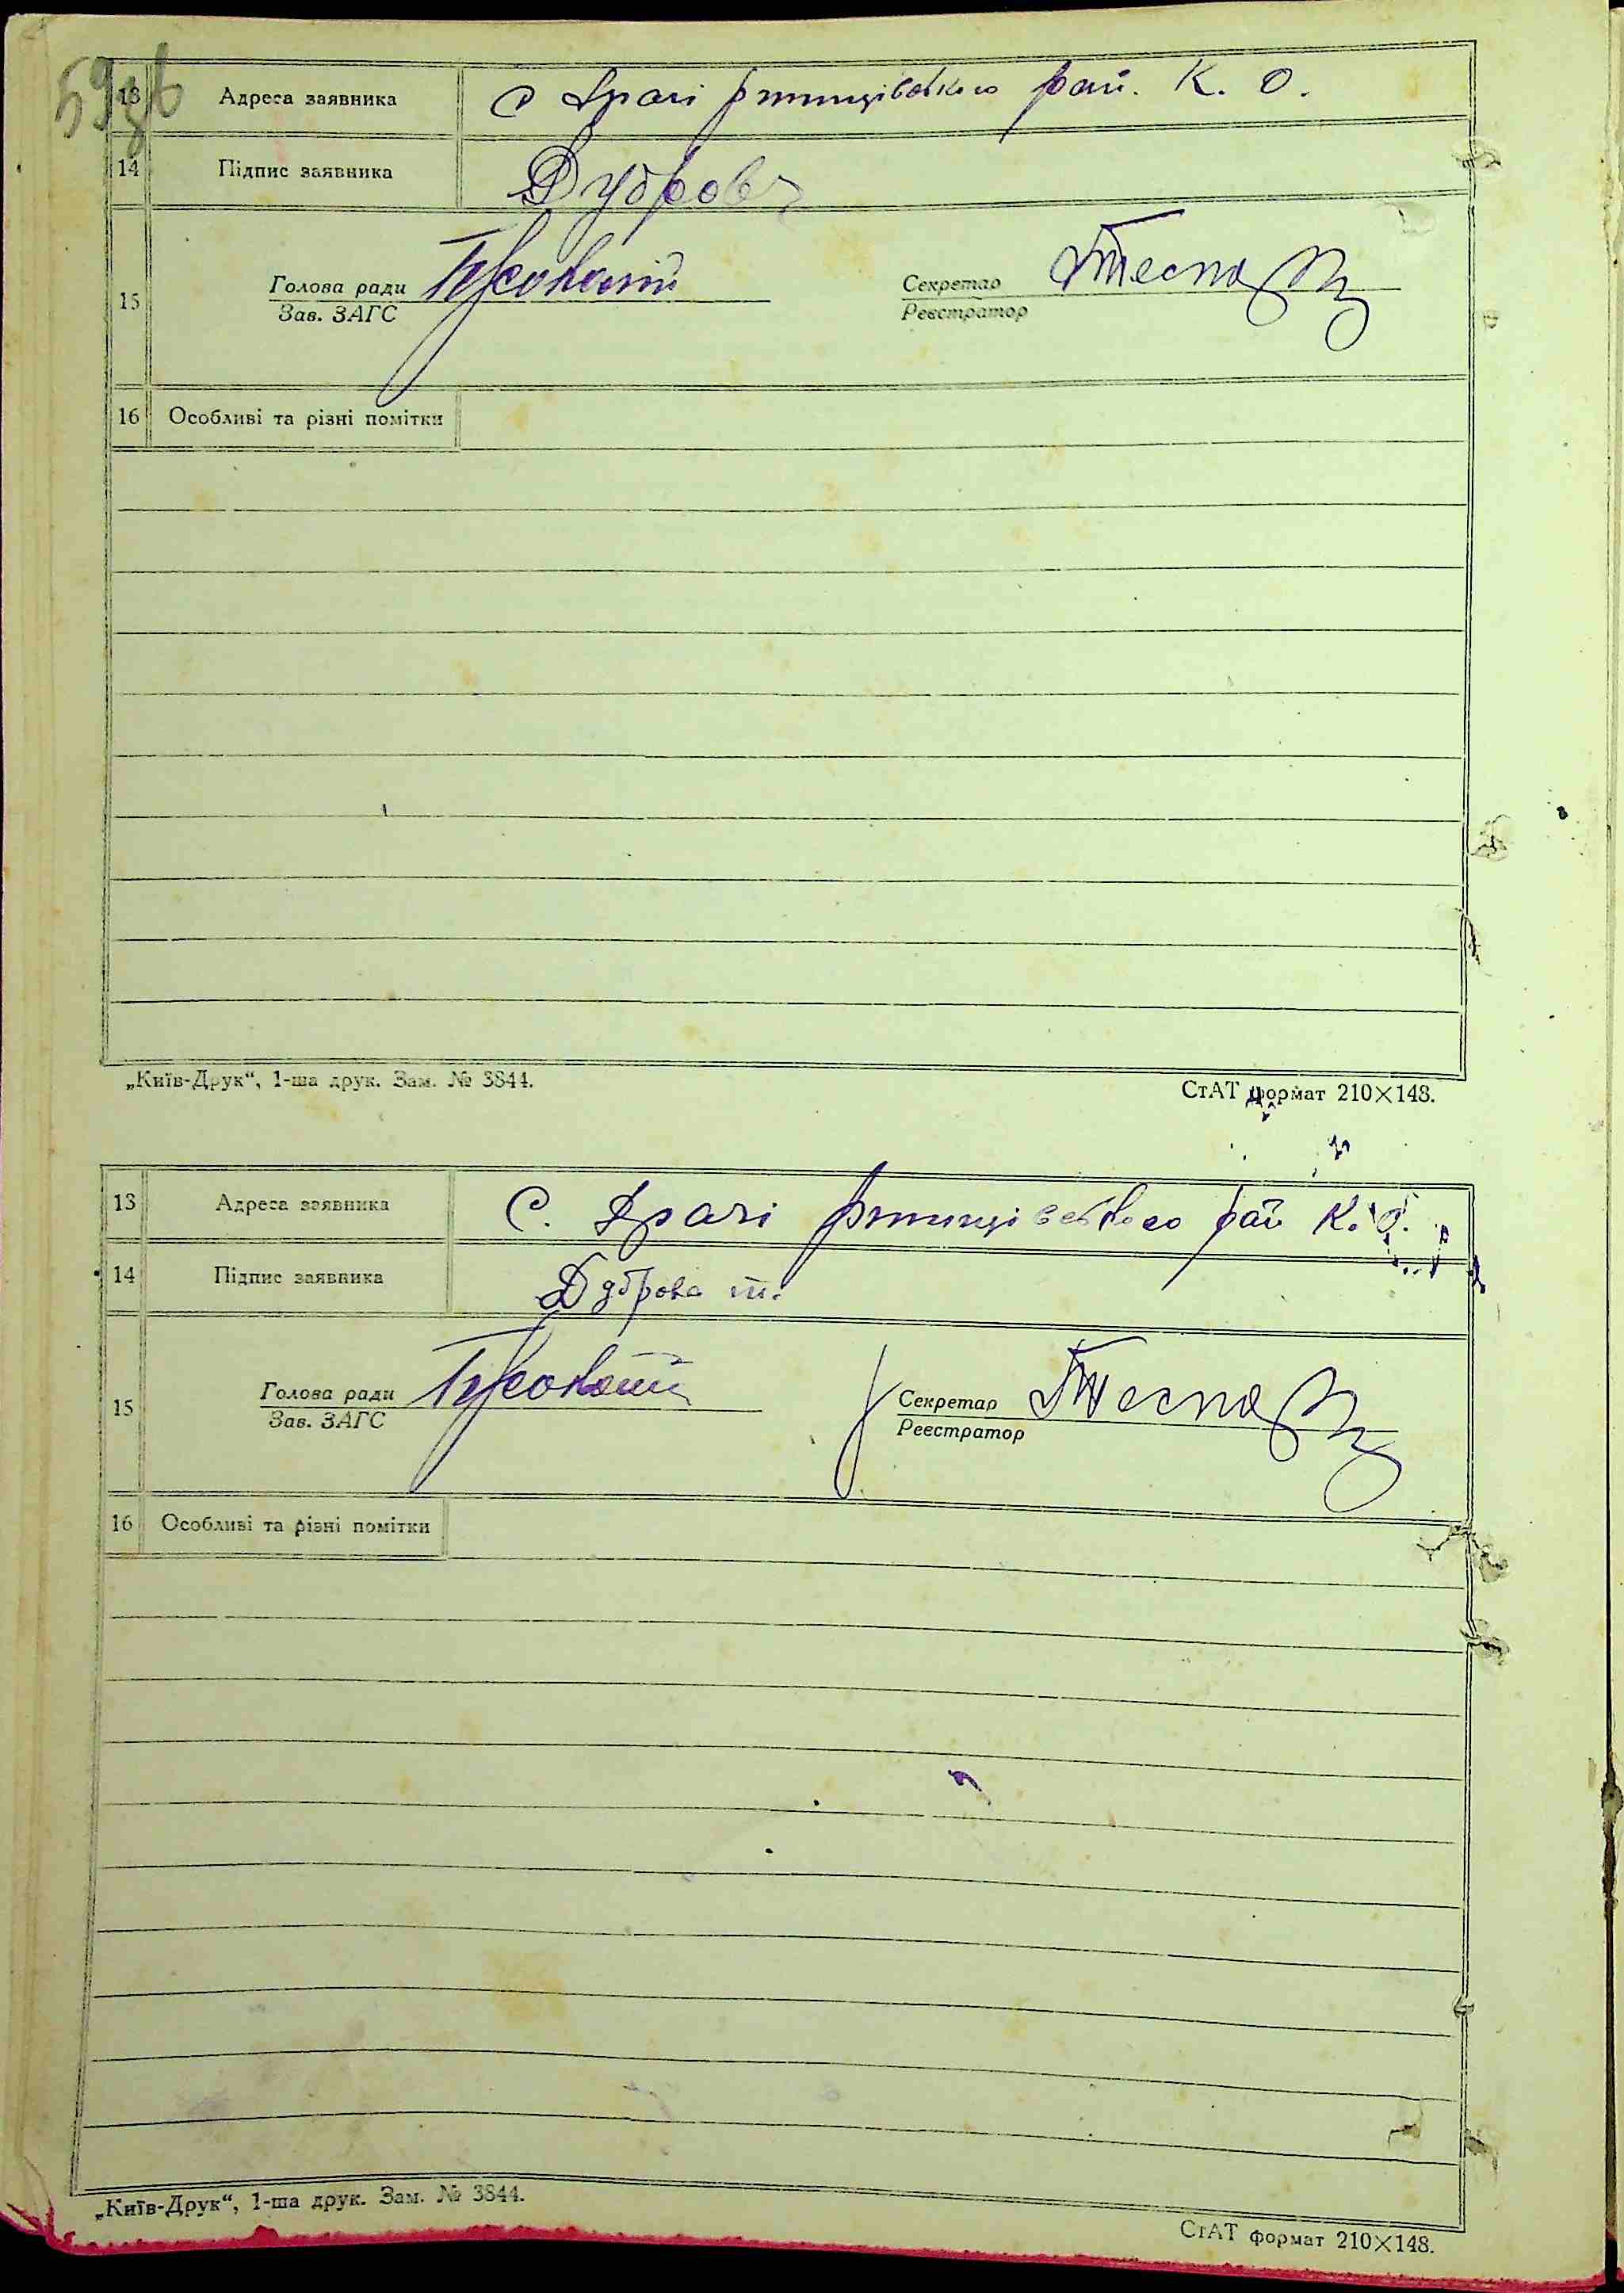 59зв
13 Адреса заявника с Драчі Ржищівського рай. К. О.
14 Підпис заявника Дуброва
15 Голова ради Секретар
Зав. ЗАГС Реєстратор
16 Особливі та різні помітки
„Київ-Друк“, 1-ша друк. Зам. № 3844. СтАТ формат 210×148.
13 Адреса заявника С. Драчі Ржищівського рай К. О.
14 Підпис заявника Дуброва
15 Голова ради Секретар
Зав. ЗАГС Реєстратор
16 Особливі та різні помітки
„Київ-Друк“, 1-ша друк. Зам. № 3844.
СтАТ формат 210×148.